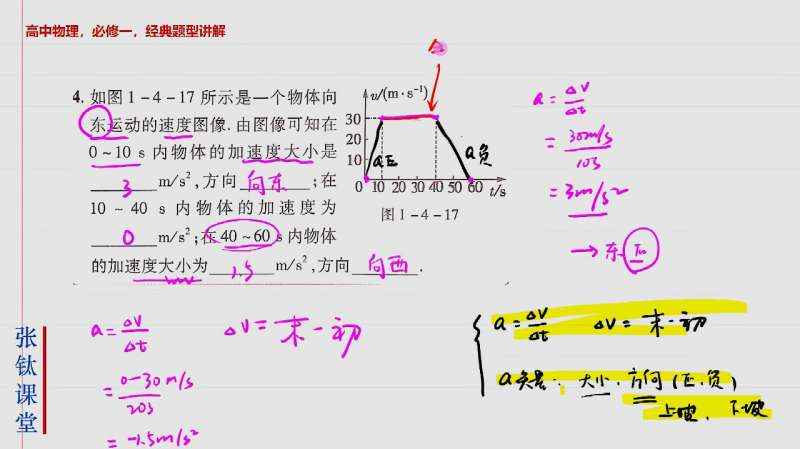 高中物理，必修一，经典题型讲解
4. 如图1-4-17所示是一个物体向
东运动的速度图像.由图像可知在
0~10 s 内物体的加速度大小是
3 m/s²,方向 向东 ;在
10 ~ 40 s 内物体的加速度为
0 m/s²;在40~60 s内物体
的加速度大小为 1.5 m/s²,方向 向西 .
v/(m·s⁻¹)
30
20
10
0 10 20 30 40 50 60 t/s
a正
a负
图1-4-17
a=Δv/Δt
=30m/s/10s
=3m/s²
→东 正
a=Δv/Δt Δv=末-初
=0-30m/s/20s
=-1.5m/s²
a=Δv/Δt Δv=末-初
a矢量: 大小.方向(正.负)
上坡. 下坡
张钛课堂